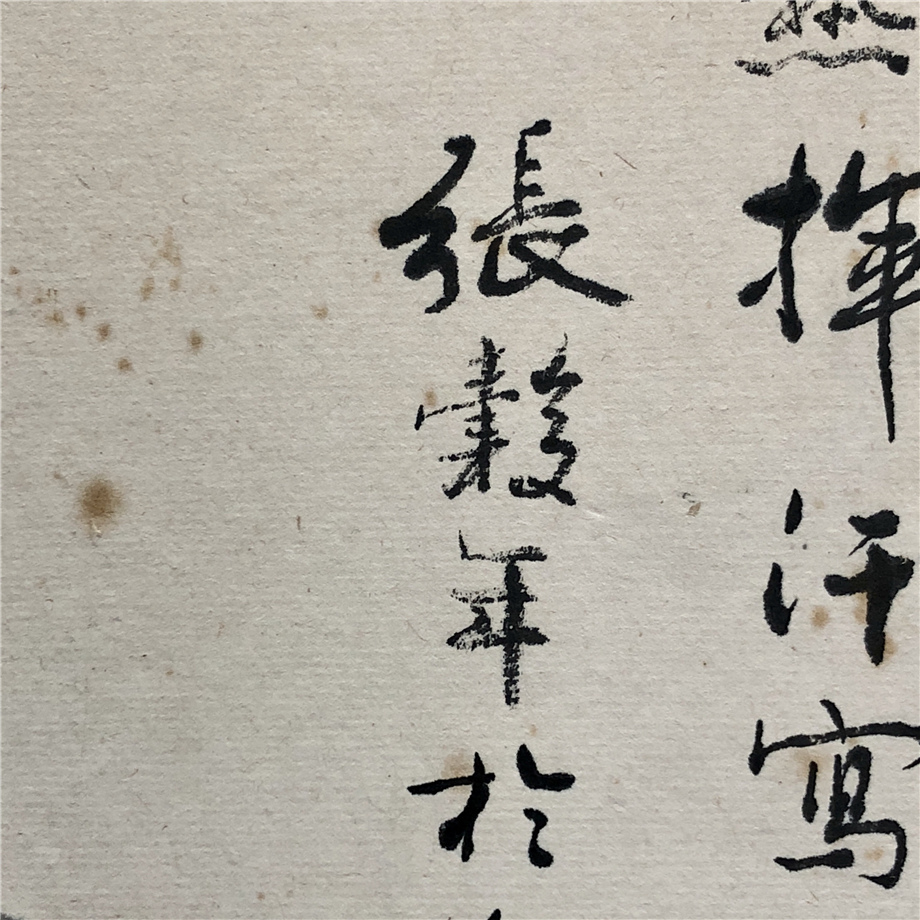 揮汗寫
張穀年於